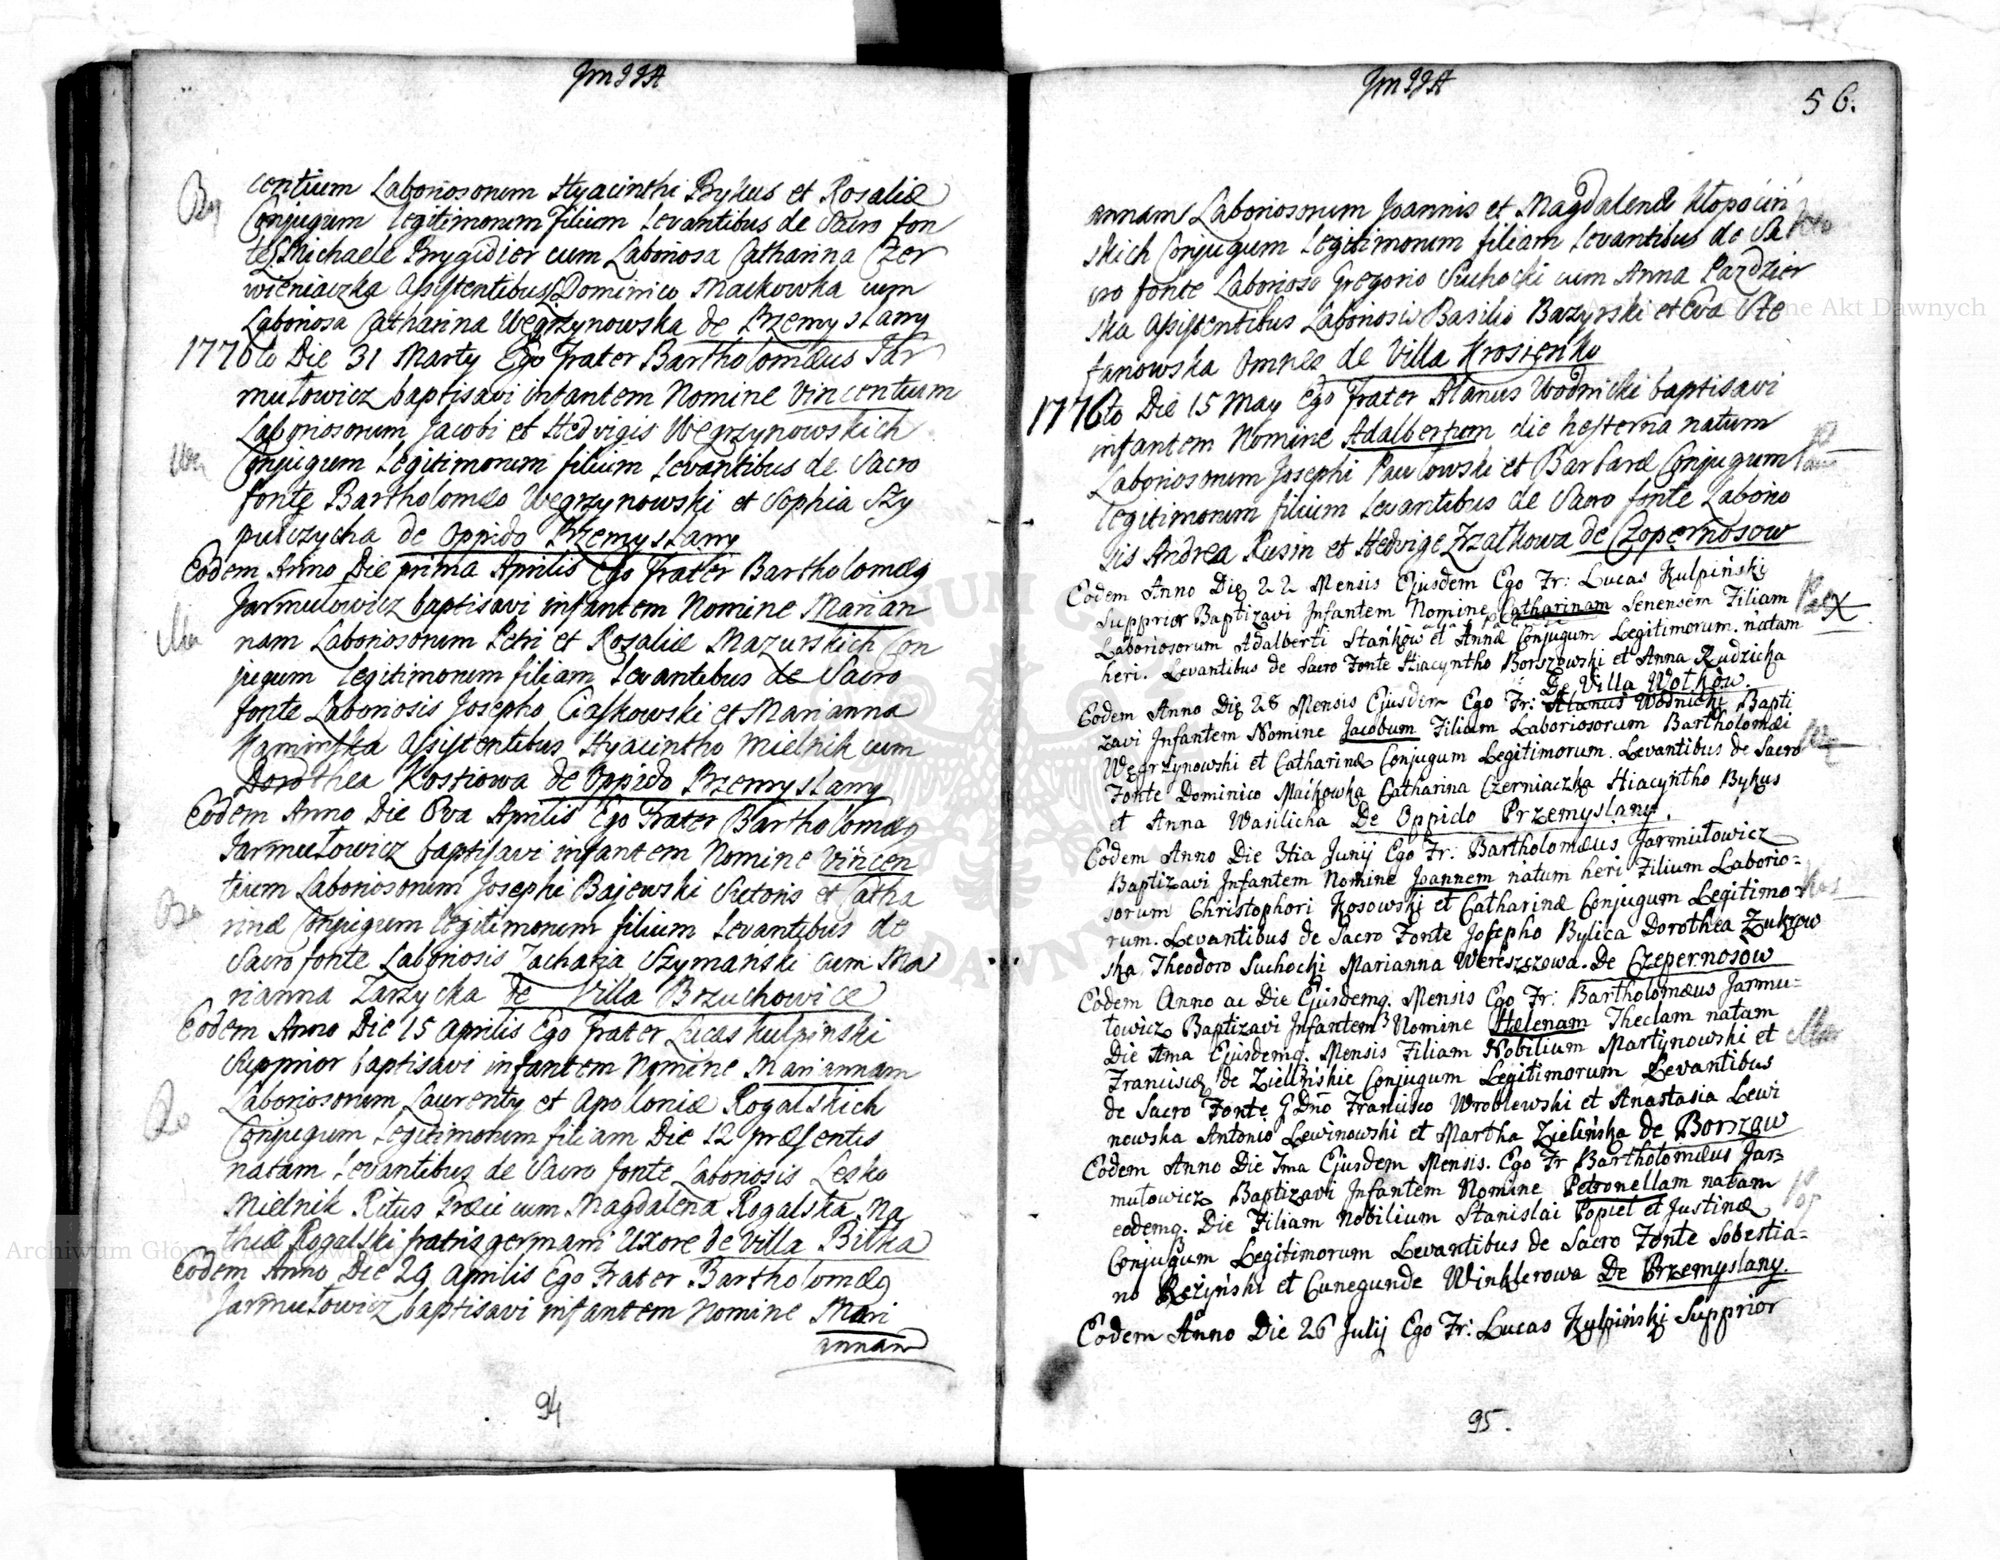 centium Laboriosorum Hyacinthi Bykus et Rosaliæ
Conjugum legitimorum filium Levantibus de Sacro fon
te Michaele Brygidier cum Laboriosa Catharina Czer
wieniaczka Assistentibus Dominico Maikowka cum
Laboriosa Catharina Węgrzynowska de Przemyslany
1776to Die 31 Marty Ego Frater Bartholomæus Jar
mułowicz baptisavi infantem Nomine Vincentium
Laboriosorum Jacobi et Hedvigis Węgrzynowskich
Conjugum Legitimorum filium Levantibus de Sacro
fonte Bartholomæo Węgrzynowski et Sophia Szy
pułczycha de Oppido Przemyslany
Eodem Anno Die prima Aprilis Ego Frater Bartholomæg
Jarmułowicz baptisavi infantem Nomine Marian
nam Laboriosorum Petri et Rosaliæ Mazurskich Con
jugum legitimorum filiam Levantibus de Sacro
fonte Laboriosis Josepho Ciaskowski et Marianna
Kaminska Assistentibus Hyacintho Mielnik cum
Dorothea Kostiowa de Oppido Przemyslany
Eodem Anno Die 8va Aprilis Ego Frater Bartholomæg
Jarmułowicz baptisavi infantem Nomine Vincen
tium Laboriosorum Josephi Bajewski Sutoris et Catha
rinæ Conjugum legitimorum filium Levantibus de
Sacro fonte Laboriosis Zacharia Szymański cum Ma
rianna Zarzycka de Villa Brzuchowice
Eodem Anno Die 15 Aprilis Ego Frater Lucas Kulpinski
Suppriior baptisavi infantem Nomine Mariannam
Laboriosorum Laurenty et Apolloniæ Rogalskich
Conjugum Legitimorum filiam Die 12 præsentis
natam Levantibus de Sacro fonte Laboriosis Lesko
Mielnik Ritus Græci cum Magdalena Rogalska Ma
thiæ Rogalski fratris germani Uxore de Villa Bilka
Eodem Anno Die 29 Aprilis Ego Frater Bartholomæg
Jarmułowicz baptisavi infantem Nomine Mari
annam
94
56.
annam Laboriosorum Joannis et Magdalenæ Kłopociń
skich Conjugum Legitimorum filiam Levantibus de Sa
cro fonte Laborioso Gregorio Suchocki cum Anna Pazdzier
ska Assistentibus Laboriosis Basilio Bazyrski et Eva Ste
fanowska Omnes de Villa Krosienko
1776to Die 15 May Ego Frater Alanus Wodnicki baptisavi
infantem Nomine Adalbertum die hesterna natum
Laboriosorum Josephi Pawłowski et Barbaræ Conjugum
legitimorum filium Levantibus de Sacro fonte Laborio
sis Andrea Rusin et Hedvige Zrzałkowa de Czopernosow
Eodem Anno Die 22 Mensis Ejusdem Ego Fr: Lucas Kulpiński
Supprior Baptizavi Infantem Nomine Catharinam Senensem Filiam
Laboriosorum Adalberti Stańkow et Annæ Conjugum Legitimorum. natam
heri. Levantibus de Sacro Fonte Hiacyntho Borszowski et Anna Rudzicka
De Villa Wołkow.
Eodem Anno Die 28 Mensis Ejusdem Ego Fr: Alanus Wodnicki Bapti
zavi Infantem Nomine Jacobum Filium Laboriosorum Bartholomæi
Węgrzynowski et Catharinæ Conjugum Legitimorum. Levantibus de Sacro
Fonte Dominico Maikowka Catharina Czerniaczka Hiacyntho Bykus
et Anna Wasilicha De Oppido Przemyslany.
Eodem Anno Die 3tia Junij Ego Fr: Bartholomæus Jarmułowicz
Baptizavi Infantem Nomine Joannem natum heri Filium Laborio-
sorum Christophori Kosowski et Catharinæ Conjugum Legitimo-
rum. Levantibus de Sacro Fonte Josepho Bylica Dorothea Zukrow
ska Theodoro Suchocki Marianna Wereszczowa. De Czepernosow
Eodem Anno ac Die Ejusdemq. Mensis Ego Fr: Bartholomæus Jarmu-
łowicz Baptizavi Infantem Nomine Hælenam Theclam natam
Die 1ma Ejusdemq. Mensis Filiam Nobilium Martynowski et
Franciscæ de Zielińskie Conjugum Legitimorum Levantibus
de Sacro Fonte G Dño Francisco Wroblewski et Anastasia Lewi
nowska Antonio Lewinowski et Martha Zielińska de Borszow
Eodem Anno Die 7ma Ejusdem Mensis. Ego Fr Bartholomæus Jar-
mułowicz Baptizavi Infantem Nomine Petronellam natam
eodemq. Die Filiam Nobilium Stanislai Popiel et Justinæ
Conjugum Legitimorum Levantibus de Sacro Fonte Sobestia-
no Reżyński et Cunegunde Winklerowa De Przemyslany.
Eodem Anno Die 26 Julij Ego Fr: Lucas Kulpiński Supprior
95.